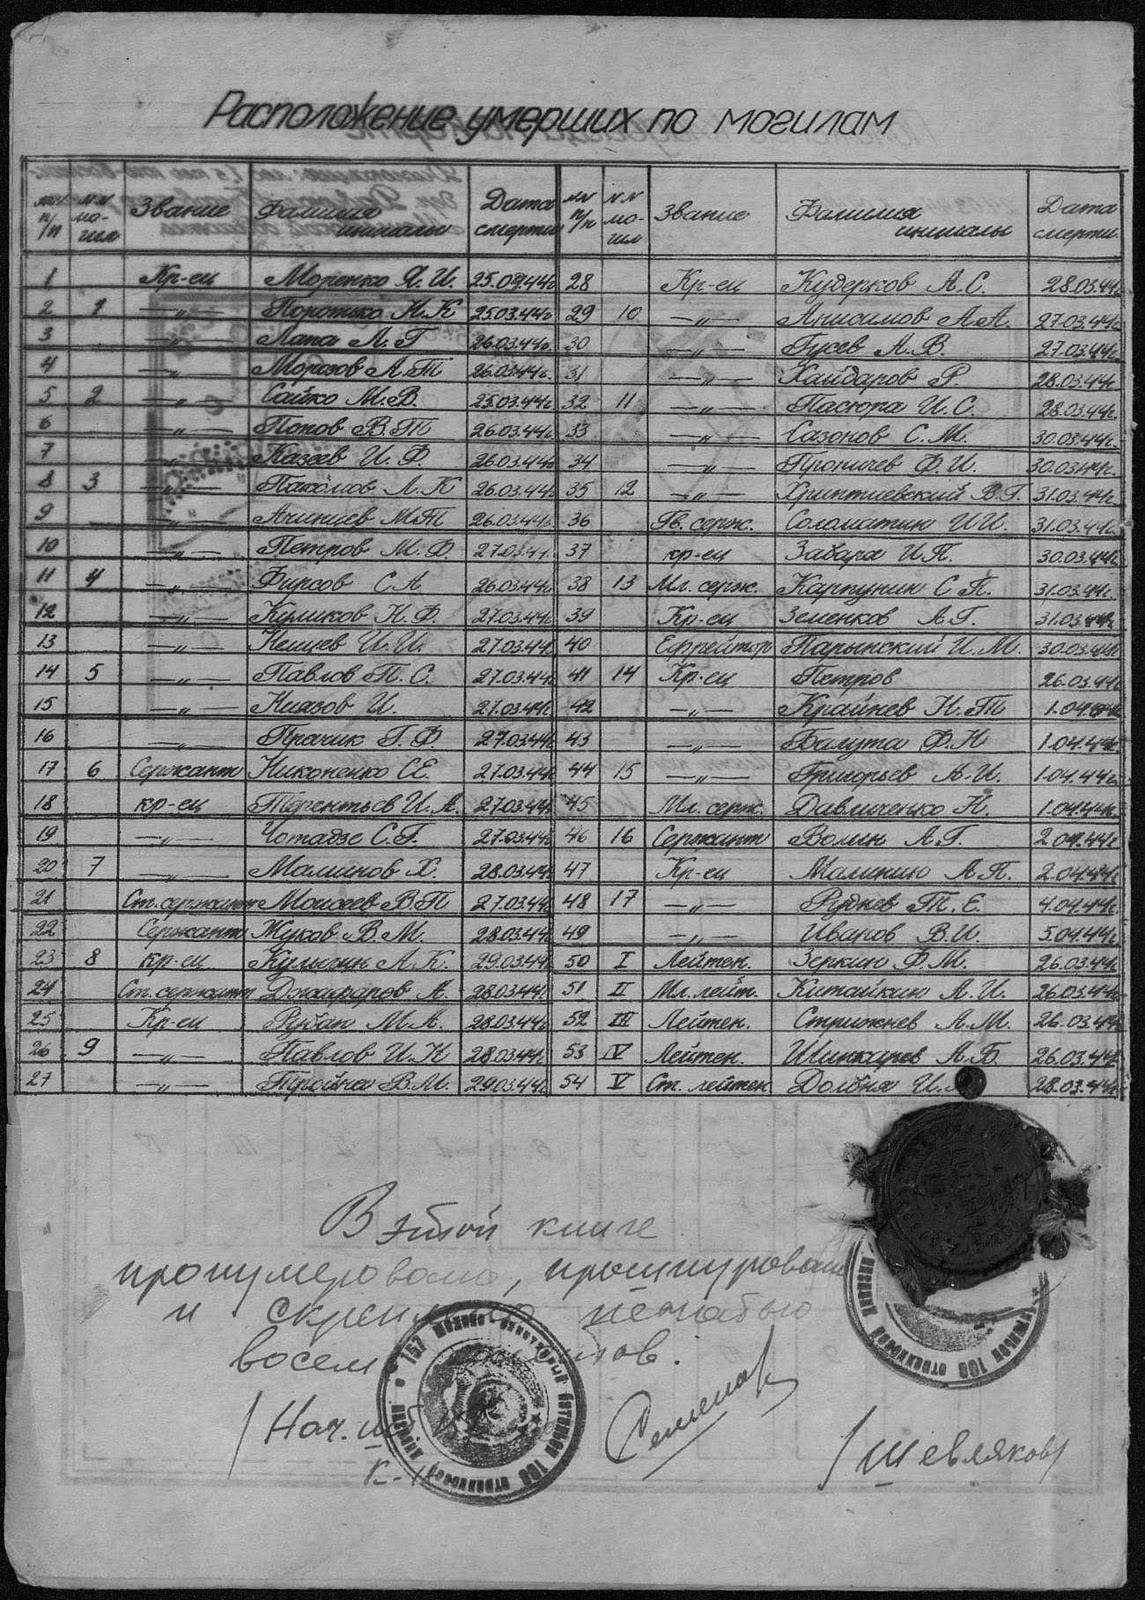 Расположение умерших по могилам
№№ п/п №№ могил Звание Фамилия инициалы Дата смерти №№ п/п №№ могил Звание Фамилия инициалы Дата смерти
1 Кр-ец Моренко Я. И. 25.03.44г. 28 Кр-ец Кудерков А. С. 28.03.44г.
2 1 —„— Поротько Н. К 25.03.44г. 29 10 —„— Анисимов А. А. 27.03.44г.
3 —„— Лапа Л. Г 26.03.44г. 30 —„— Гусев А. В. 27.03.44г.
4 —„— Морозов А. Т 26.03.44г. 31 —„— Хайдаров Р. 28.03.44г.
5 2 —„— Сайко М. В. 25.03.44г. 32 11 —„— Пасюра И. С. 28.03.44г.
6 —„— Попов В. Т 26.03.44г. 33 —„— Сазонов С. М. 30.03.44г.
7 —„— Казеев И. Ф. 26.03.44г. 34 —„— Проничев Ф. И. 30.03.44г.
8 3 —„— Пахомов Л. К 26.03.44г. 35 12 —„— Хриптиевский В. Г. 31.03.44г.
9 —„— М. Т 26.03.44г. 36 Гв. серж. Соломатин И. И. 31.03.44г.
10 —„— Петров М. Ф. 27.03.44г. 37 кр-ец Забара И. П. 30.03.44г.
11 4 —„— Фирсов С. А 26.03.44г. 38 13 Мл. серж. Карпунин С. П. 31.03.44г.
12 —„— Куликов Н. Ф. 27.03.44г. 39 Кр-ец Земенков А. Г. 31.03.44г.
13 —„— И. И. 27.03.44г. 40 Ефрейтор Парынский И. М. 30.03.44г.
14 5 —„— Павлов П. С. 27.03.44г. 41 14 Кр-ец Петров 26.03.44г.
15 —„— Ниазов И. 27.03.44г. 42 —„— Крайнев Н. Т 1.04.44г.
16 —„— Прачик Г. Ф. 27.03.44г. 43 —„— Балута Ф. Н 1.04.44г.
17 6 Сержант Никоненко С. Е. 27.03.44г. 44 15 —„— Григорьев А. И. 1.04.44г.
18 кр-ец Терентьев И. А. 27.03.44г. 45 Мл. серж. Давличенко Н. 1.04.44г.
19 —„— Чотадзе С. Г. 27.03.44г. 46 16 Сержант Волин А. Г. 2.04.44г.
20 7 —„— Маминов Х. 28.03.44г. 47 Кр-ец Малинио А. П. 2.04.44г.
21 Ст. сержант Моисеев В. П 27.03.44г. 48 17 —„— Руднев Т. Е. 4.04.44г.
22 Сержант Жуков В. М. 28.03.44г. 49 —„— Иванов В. И. 5.04.44г.
23 8 кр-ец Кулыгин А. К. 29.03.44г. 50 I Лейтен. Зеркин Ф. М. 26.03.44г.
24 Ст. сержант Джафаров А. 28.03.44г. 51 II Мл. лейт. Китайкин А. И. 26.03.44г.
25 Кр-ец Рубан М. А. 28.03.44г. 52 III Лейтен. Стрижнев А. М. 26.03.44г.
26 9 —„— Павлов И. Н 28.03.44г. 53 IV Лейтен. Шинкарев А. Б 26.03.44г.
27 —„— Тройна В. М. 29.03.44г. 54 V Ст. лейтен. Долбня И. 28.03.44г.
В этой книге
пронумеровано, прошнуровано
и скреплено печатью
восемь листов.
/Нач. Семенов /Шевляков/